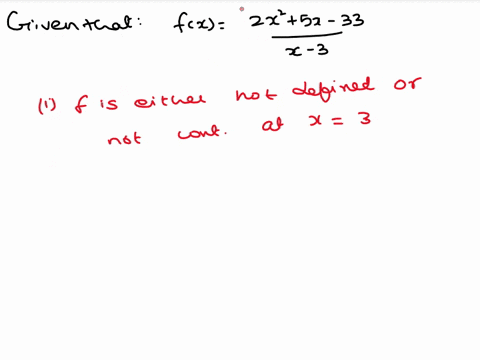 Given that: f(x) = 2x²+5x-33 / x-3
(i) f is either not defined or
not cont. at x = 3